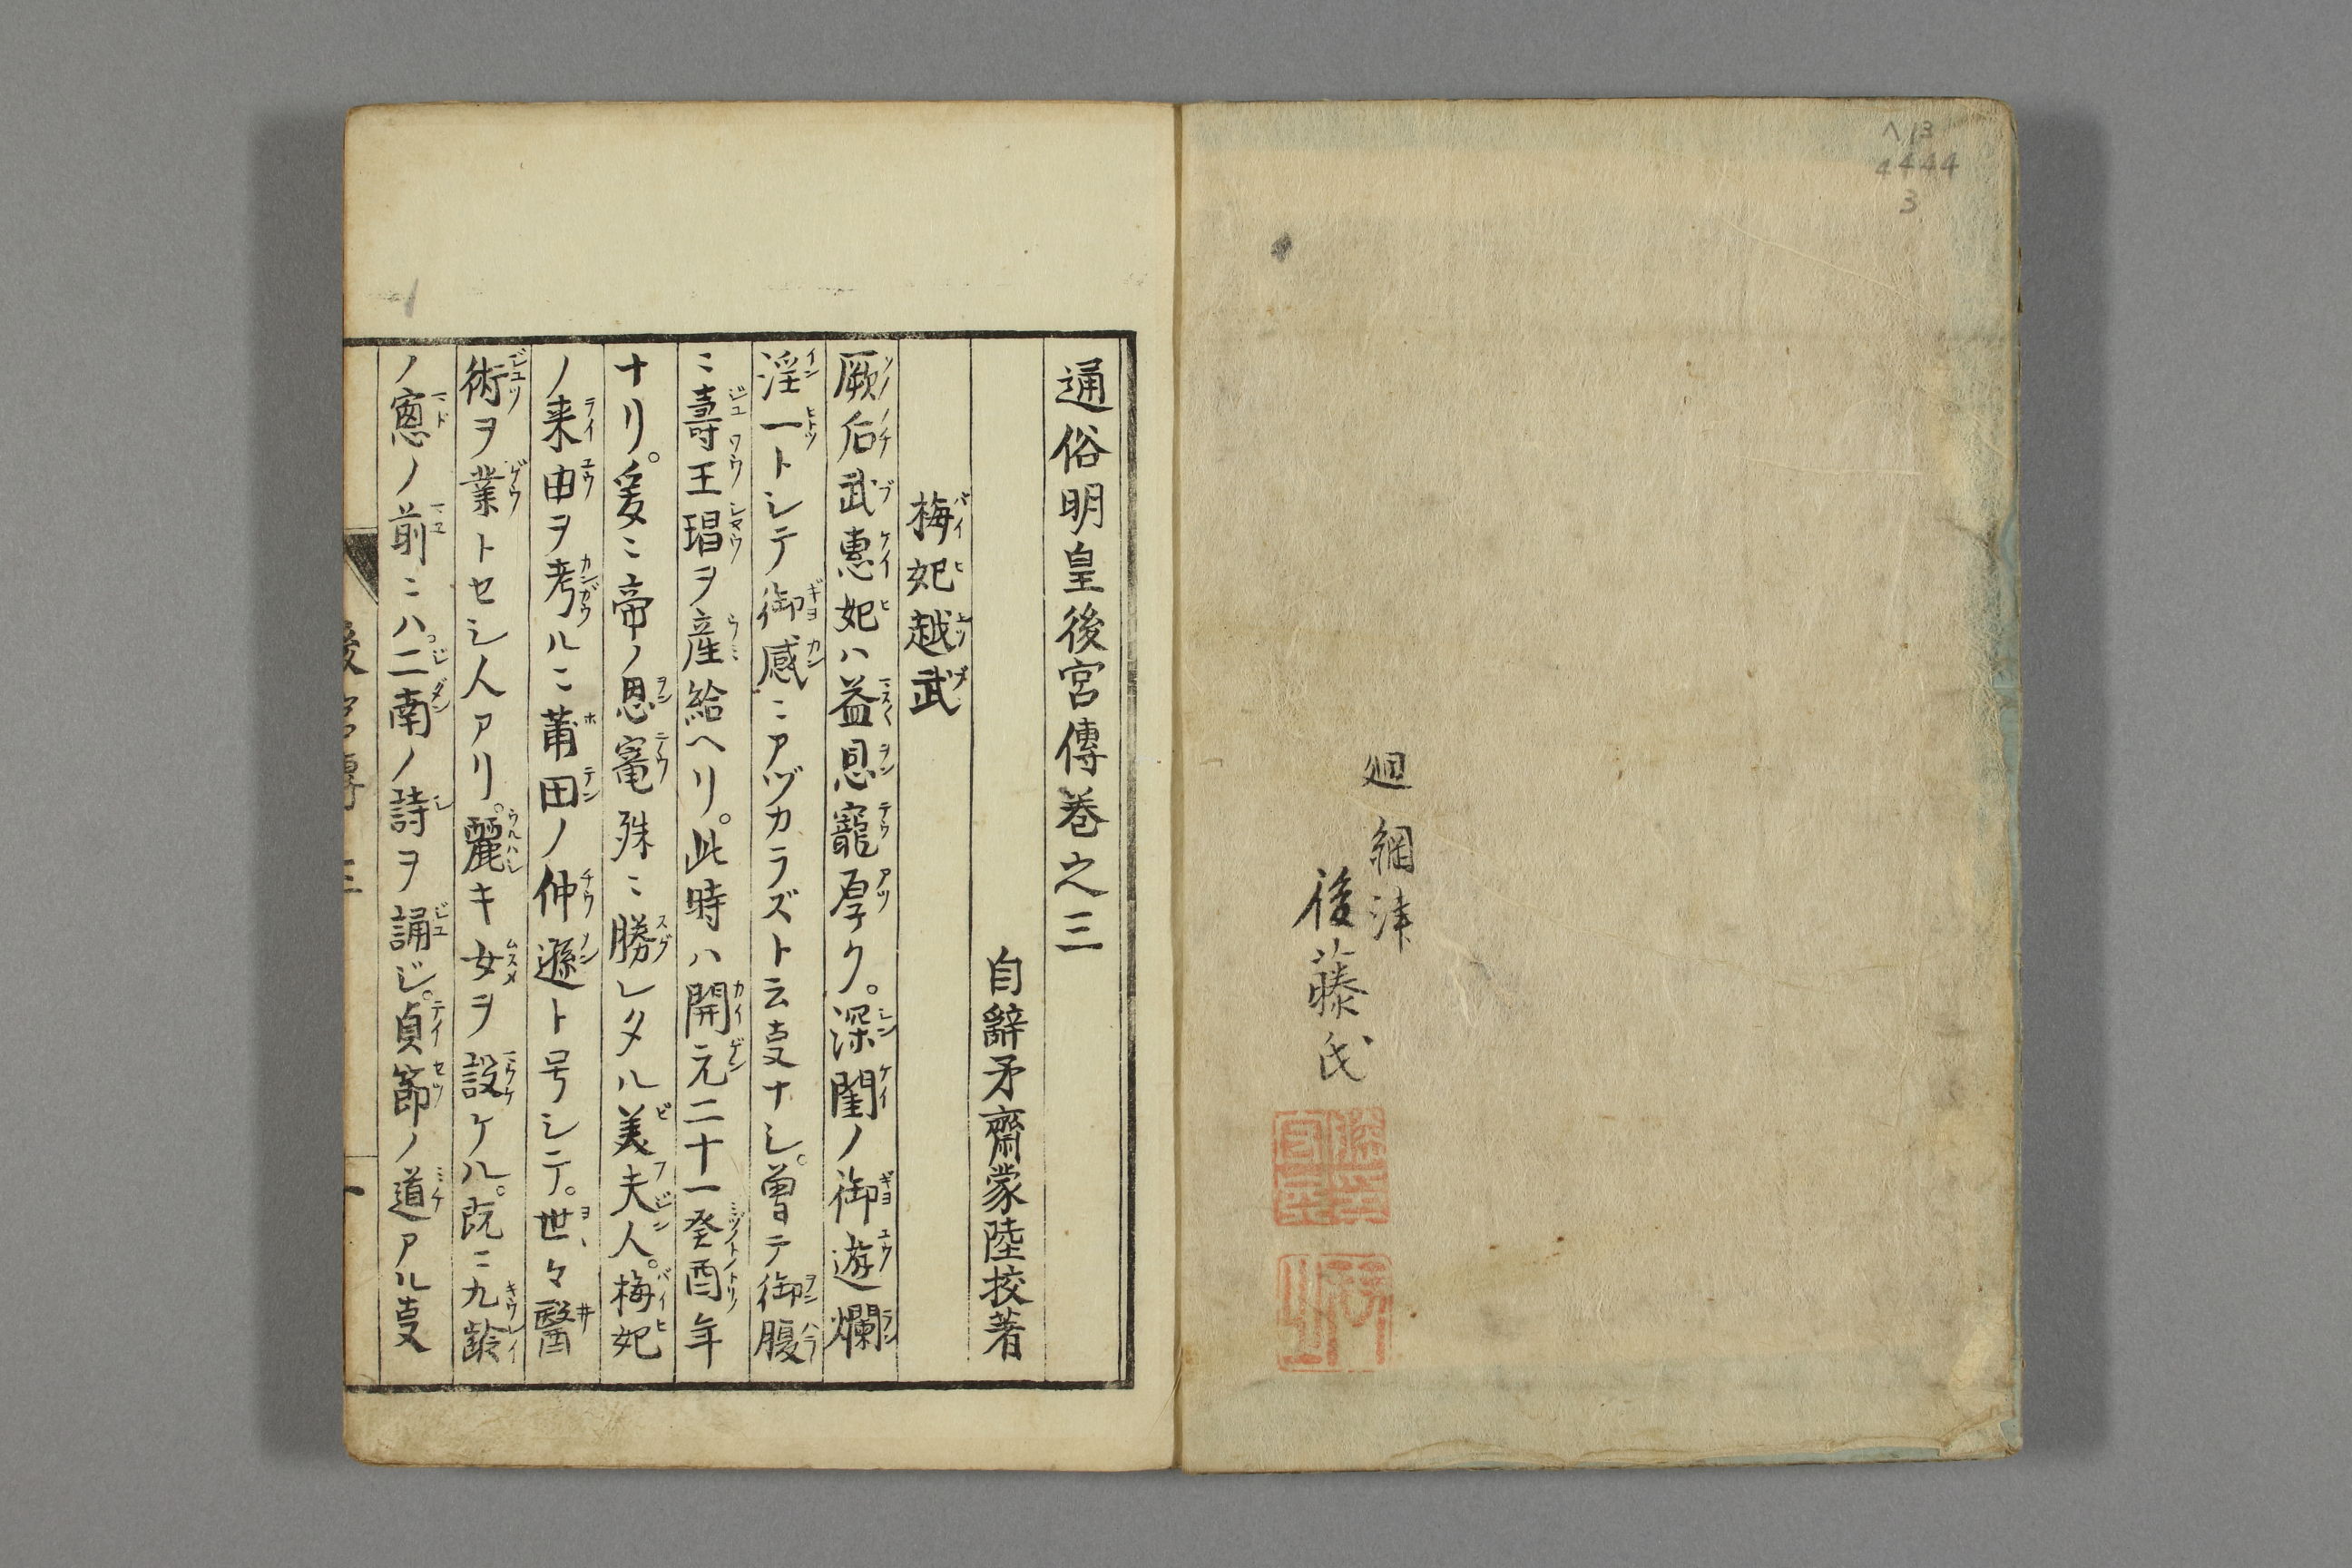 ヘ13
4444
3
廻
綱津
後藤氏
通俗明皇後宮傳巻之三
自辭矛齋蒙陸挍著
梅妃越武
厥后武惠妃ハ益恩寵厚ク。深閨ノ御遊爛
淫一トシテ御感ニアヅカラズト云叓ナシ。曽テ御腹
ニ壽王瑁ヲ産給ヘリ。此時ハ開元二十一癸酉年
ナリ。爰ニ帝ノ恩竉殊ニ勝レタル美夫人。梅妃
ノ来由ヲ考ルニ莆田ノ仲遜ト号シテ。世々醫
術ヲ業トセシ人アリ。麗キ女ヲ設ケル。既ニ九齡
ノ窻ノ前ニハ。二南ノ詩ヲ誦ジ。貞節ノ道アル叓
後宮傳 三